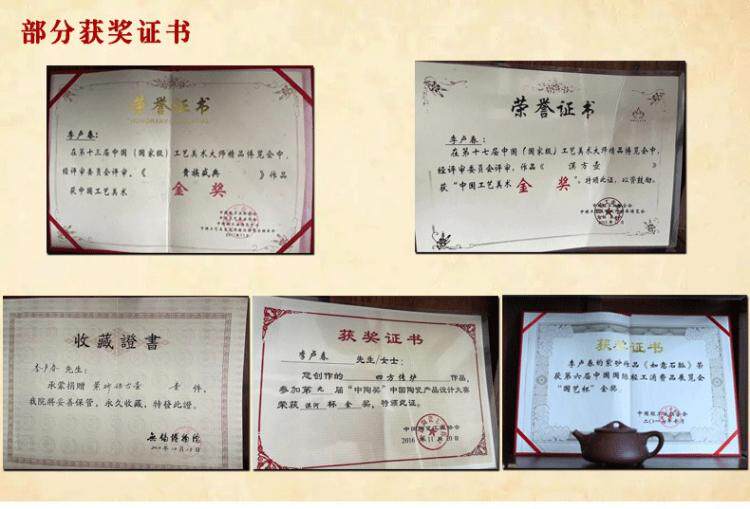 部分获奖证书
荣誉证书
李卢春:
在第十三届中国(国家级)工艺美术大师精品博览会中,
经评审委员会评审,《 贵族盛典 》作品
获中国工艺美术 金 奖
荣誉证书
李卢春:
在第十七届中国(国家级)工艺美术大师精品博览会中,
经评审委员会评审,作品《 汉方壶 》
获“中国工艺美术 金 奖 ”,特颁此证,以资鼓励。
收藏證書
李卢春 先生:
承蒙捐赠 壹 件,
我院將妥善保管,永久收藏,特發此證。
无锡博物院
获奖证书
李卢春 先生/女士:
您创作的 四方传炉 作品,
参加第 九 届“中陶奖”中国陶瓷产品设计大赛
荣获 杯 金 奖,特颁此证。
2016 年 11 月 10 日
获奖证书
李卢春的紫砂作品《如意石瓢》荣
获第六届中国国际轻工消费品展览会
“国艺杯”金奖。